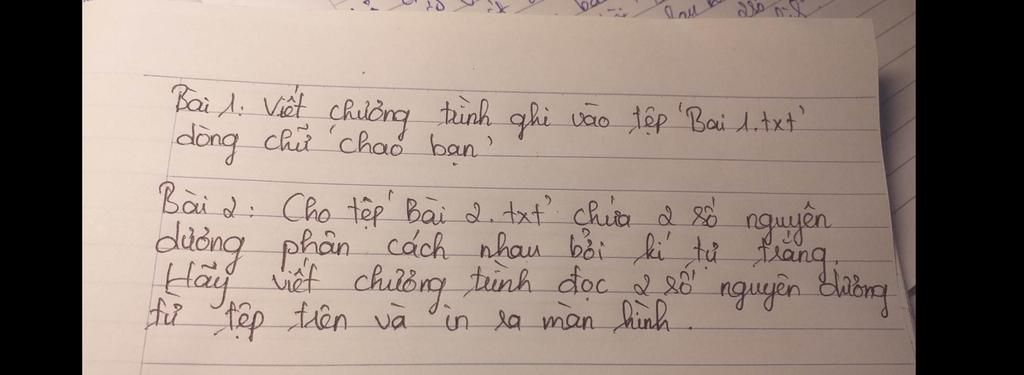 Bài 1: Viết chương trình ghi vào tệp 'Bai 1.txt'
dòng chữ 'chao bạn'
Bài 2: Cho tệp 'Bài 2.txt' chứa 2 số nguyên
dương phân cách nhau bởi kí tự trắng.
Hãy viết chương trình đọc 2 số nguyên dương
từ tệp trên và in ra màn hình.